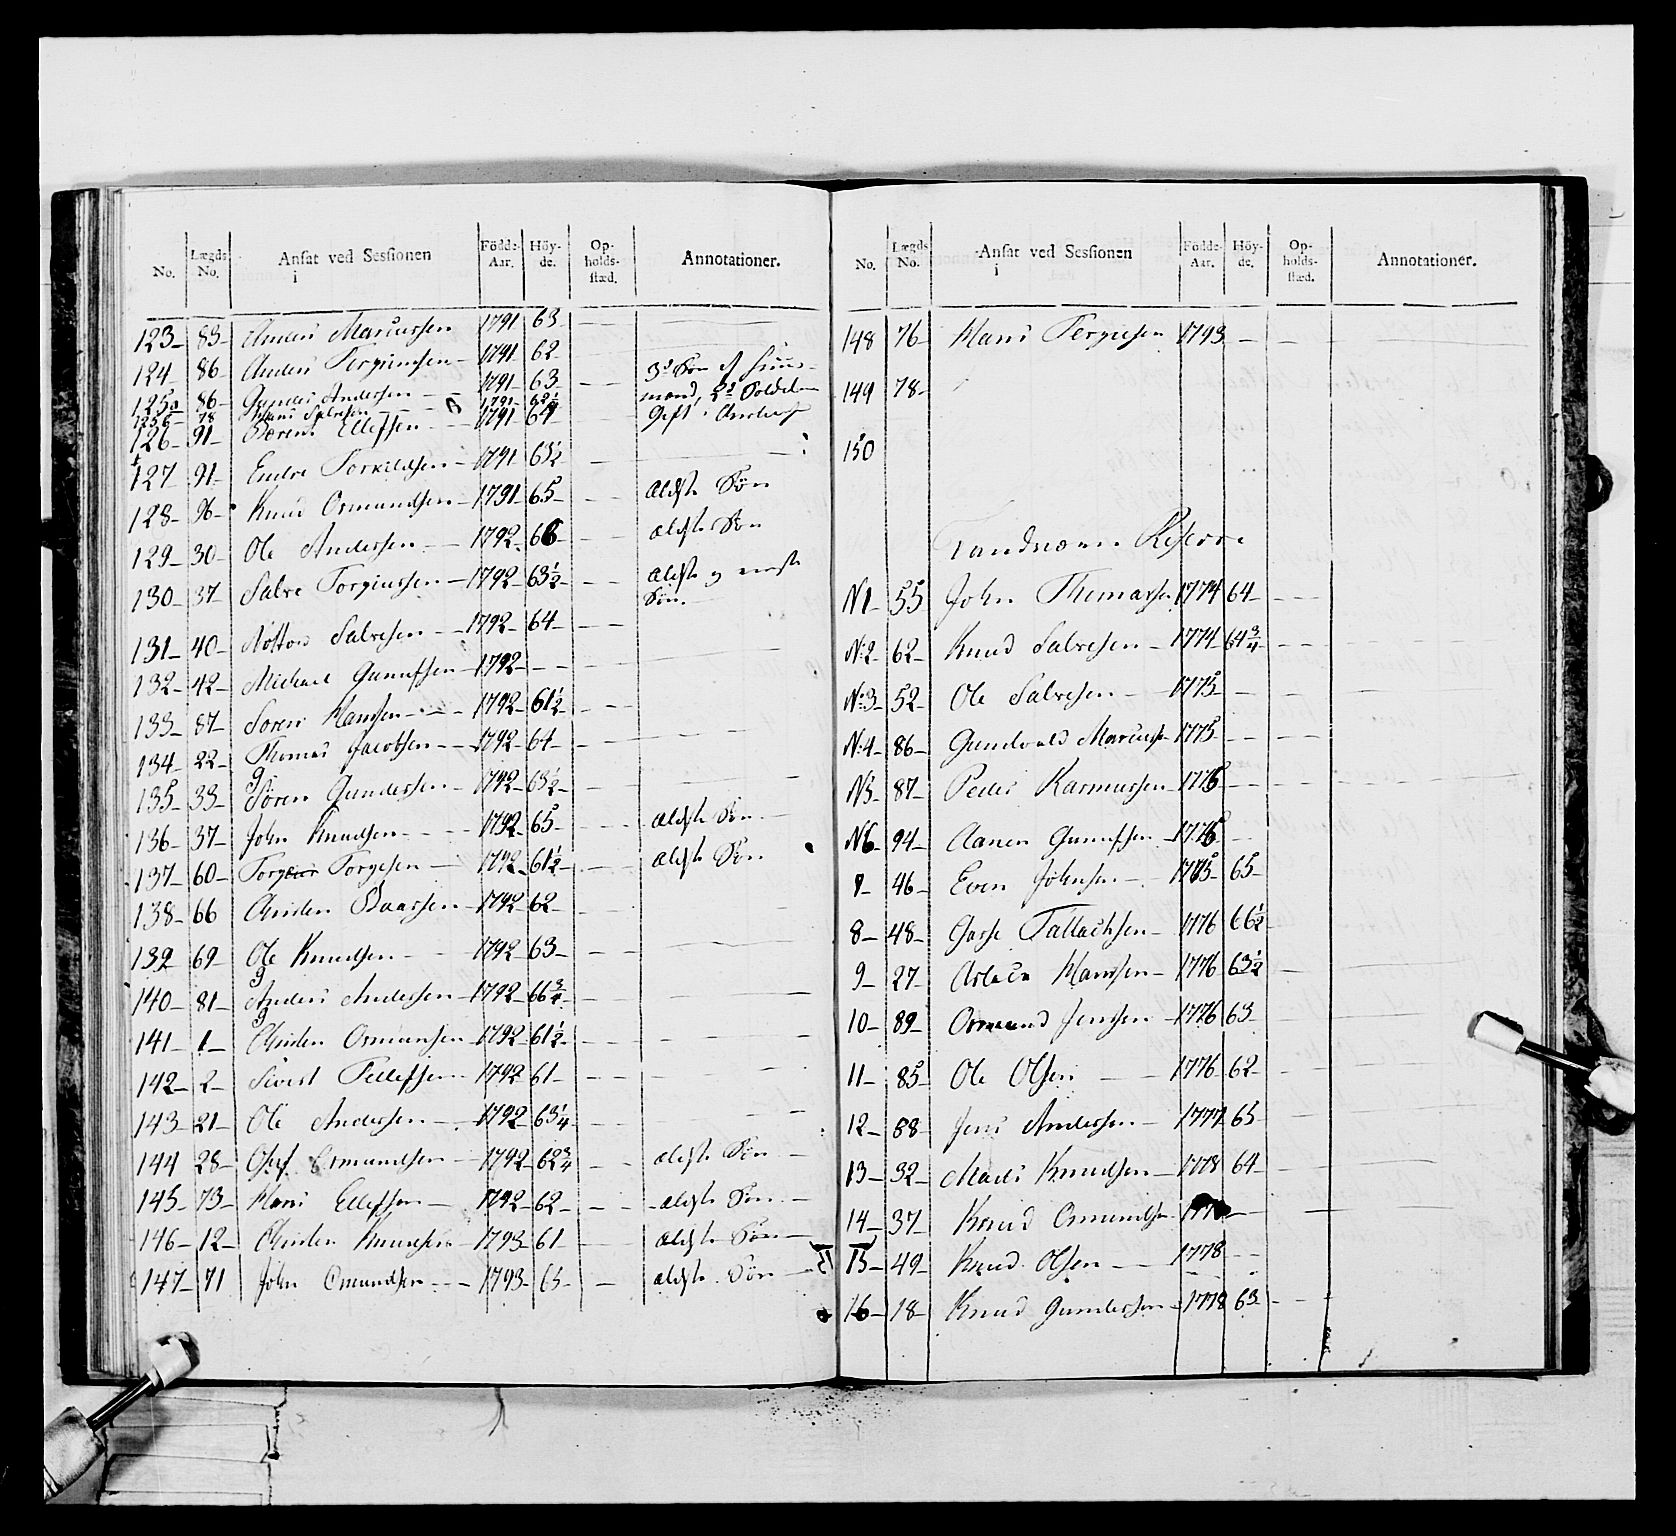 No. Lægds No. Ansat ved Sessionen i Födde-Aar. Höy-de. Op-holds-stæd. Annotationer.
123 83 Anders Mariussen 1791 63
124 86 Anders Tergiunsen 1791 62
125a 86 Gunder Andersen 1791 63 3de Søn af
125b 78 Hans Salvesen 1791
126 91 Berent Ellefsen 1791 64 Gift
127 91 Endre Torkildsen 1791 63½
128 96 Knud Osmundsen 1791 65 ældste Søn
129 30 Ole Andersen 1792 66 ældste Søn
130 37 Salve Torgiussen 1792 63½ ældste og eneste Søn.
131 40 Salvesen 1792 64
132 42 Michael Gunufsen 1792
133 87 Søren Hansen 1792 61½
134 22 Thomas Jacobsen 1792 64
135 33 Søren Gundersen 1792 63½
136 37 John Knudsen 1792 65 ældste Søn
137 60 Torgesen 1792 61½ ældste Søn
138 66 Christen Baassen 1792 62
139 69 Ole Knudsen 1792 63
140 81 Anders Andersen 1792 66¾
141 1 Christen Osmunsen 1792 61½
142 2 Sivert Tellefsen 1792 61
143 21 Ole Andersen 1792 63¼
144 28 Osmundsen 1792 62¾ ældste Søn
145 73 Hans Ellefsen 1792 62 ældste Søn
146 12 Christen Knudsen 1793 61 ældste Søn
147 71 John Osmundsen 1793 65 ældste Søn
No. Lægds No. Ansat ved Sessionen i Födde-Aar. Höy-de. Op-holds-stæd. Annotationer.
148 76 Hans Tergiesen 1793
149 78
150
Landværns Reserve
N1 55 John Thomassen 1774 64
N:2 62 Knud Salvesen 1774 64¾
N:3 52 Ole Salvesen 1775
N:4 86 Gundvald Mariussen 1775
N5 87 Peder Rasmussen 1775
N6 94 Aanen Gunufsen 1775
7 46 Even Johnsen 1775 65
8 48 Tallachsen 1776 66½
9 27 Aslach Hansen 1776 63½
10 89 Osmund Jenssen 1776 63
11 85 Ole Olsen 1776 62
12 88 Jens Andersen 1777 65
13 32 Mads Knudsen 1778 64
14 37 Knud Osmundsen
15 49 Knud Olsen 1778
16 18 Knud Gundersen 1778 63